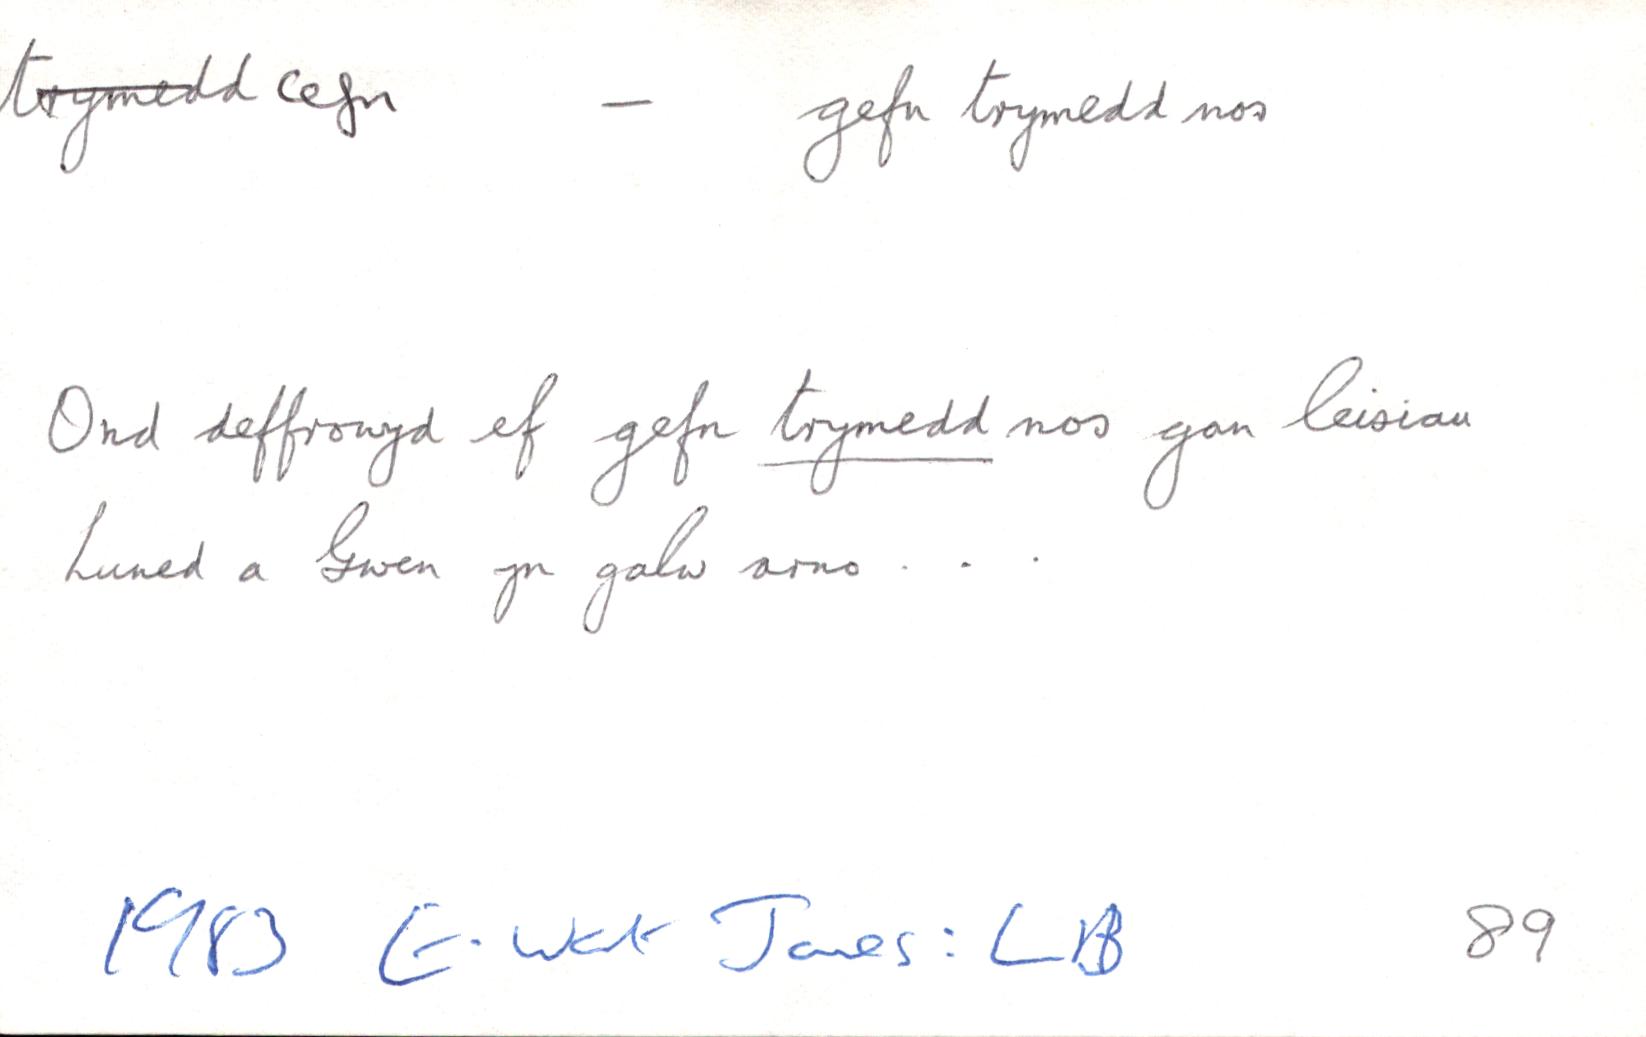 trymedd cefn – gefn trymedd nos
Ond deffrowyd ef gefn trymedd nos gan leisiau
Luned a Gwen yn galw arno . . .
1983 E. Jones: LB 89